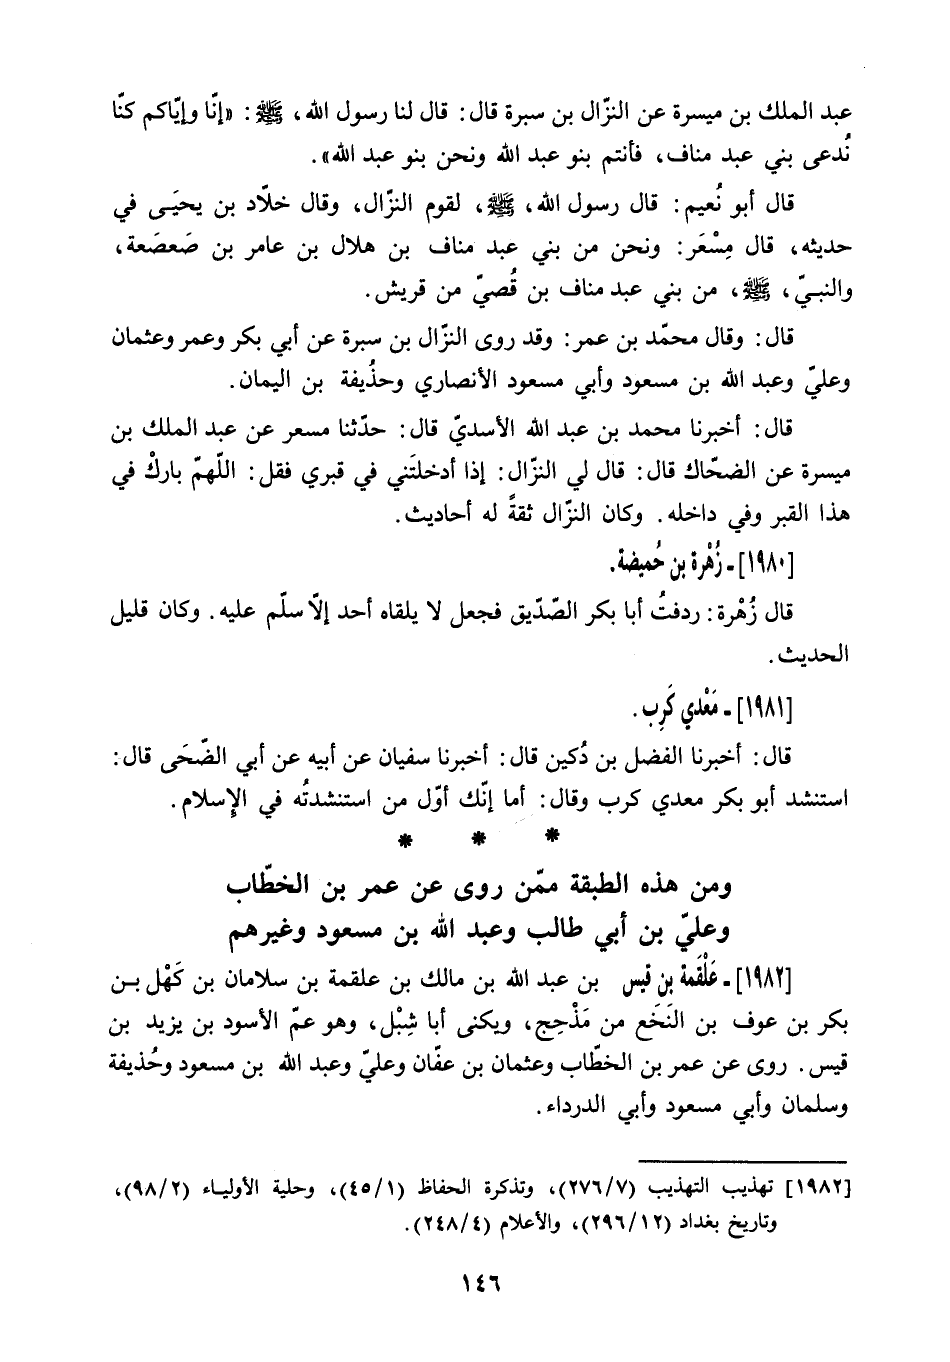 عبد الملك بن ميسرة عن النزّال بن سبرة قال: قال لنا رسول الله، ﷺ: «إنّا وإيّاكم كنّا
نُدعى بني عبد مناف، فأنتم بنو عبد الله ونحن بنو عبد الله».
قال أبو نُعيم: قال رسول الله، ﷺ، لقوم النزّال، وقال خلّاد بن يحيَى في
حديثه، قال مِسْعَر: ونحن من بني عبد مناف بن هلال بن عامر بن صَعصَعة،
والنبيّ، ﷺ، من بني عبد مناف بن قُصيّ من قريش.
قال: وقال محمّد بن عمر: وقد روى النزّال بن سبرة عن أبي بكر وعمر وعثمان
وعليّ وعبد الله بن مسعود وأبي مسعود الأنصاري وحذُيفة بن اليمان.
قال: أخبرنا محمد بن عبد الله الأسديّ قال: حدّثنا مسعر عن عبد الملك بن
ميسرة عن الضحّاك قال: قال لي النزّال: إذا أدخلتَني في قبري فقل: اللّهمّ باركْ في
هذا القبر وفي داخله. وكان النزّال ثقةً له أحاديث.
[١٩٨٠] ـ زُهْرة بن حُميضة.
قال زُهْرة: ردفتُ أبا بكر الصّدّيق فجعل لا يلقاه أحد إلاّ سلّم عليه. وكان قليل
الحديث.
[١٩٨١] ـ مَعْدي كَرِب.
قال: أخبرنا الفضل بن دُكين قال: أخبرنا سفيان عن أبيه عن أبي الضّحَى قال:
استنشد أبو بكر معدي كرب وقال: أما إنّك أوّل من استنشدتُه في الإسلام.
* * *
ومن هذه الطبقة ممّن روى عن عمر بن الخطّاب
وعليّ بن أبي طالب وعبد الله بن مسعود وغيرهم
[١٩٨٢] ـ عَلْقَمة بن قيس بن عبد الله بن مالك بن علقمة بن سلامان بن كَهْل بن
بكر بن عوف بن النَخَع من مَذْحِج، ويكنى أبا شِبْل، وهو عمّ الأسود بن يزيد بن
قيس. روى عن عمر بن الخطّاب وعثمان بن عفّان وعليّ وعبد الله بن مسعود وحُذيفة
وسلمان وأبي مسعود وأبي الدرداء.
[١٩٨٢] تهذيب التهذيب (٢٧٦/٧)، وتذكرة الحفاظ (٤٥/١)، وحلية الأولياء (٩٨/٢)،
وتاريخ بغداد (٢٩٦/١٢)، والأعلام (٢٤٨/٤).
١٤٦